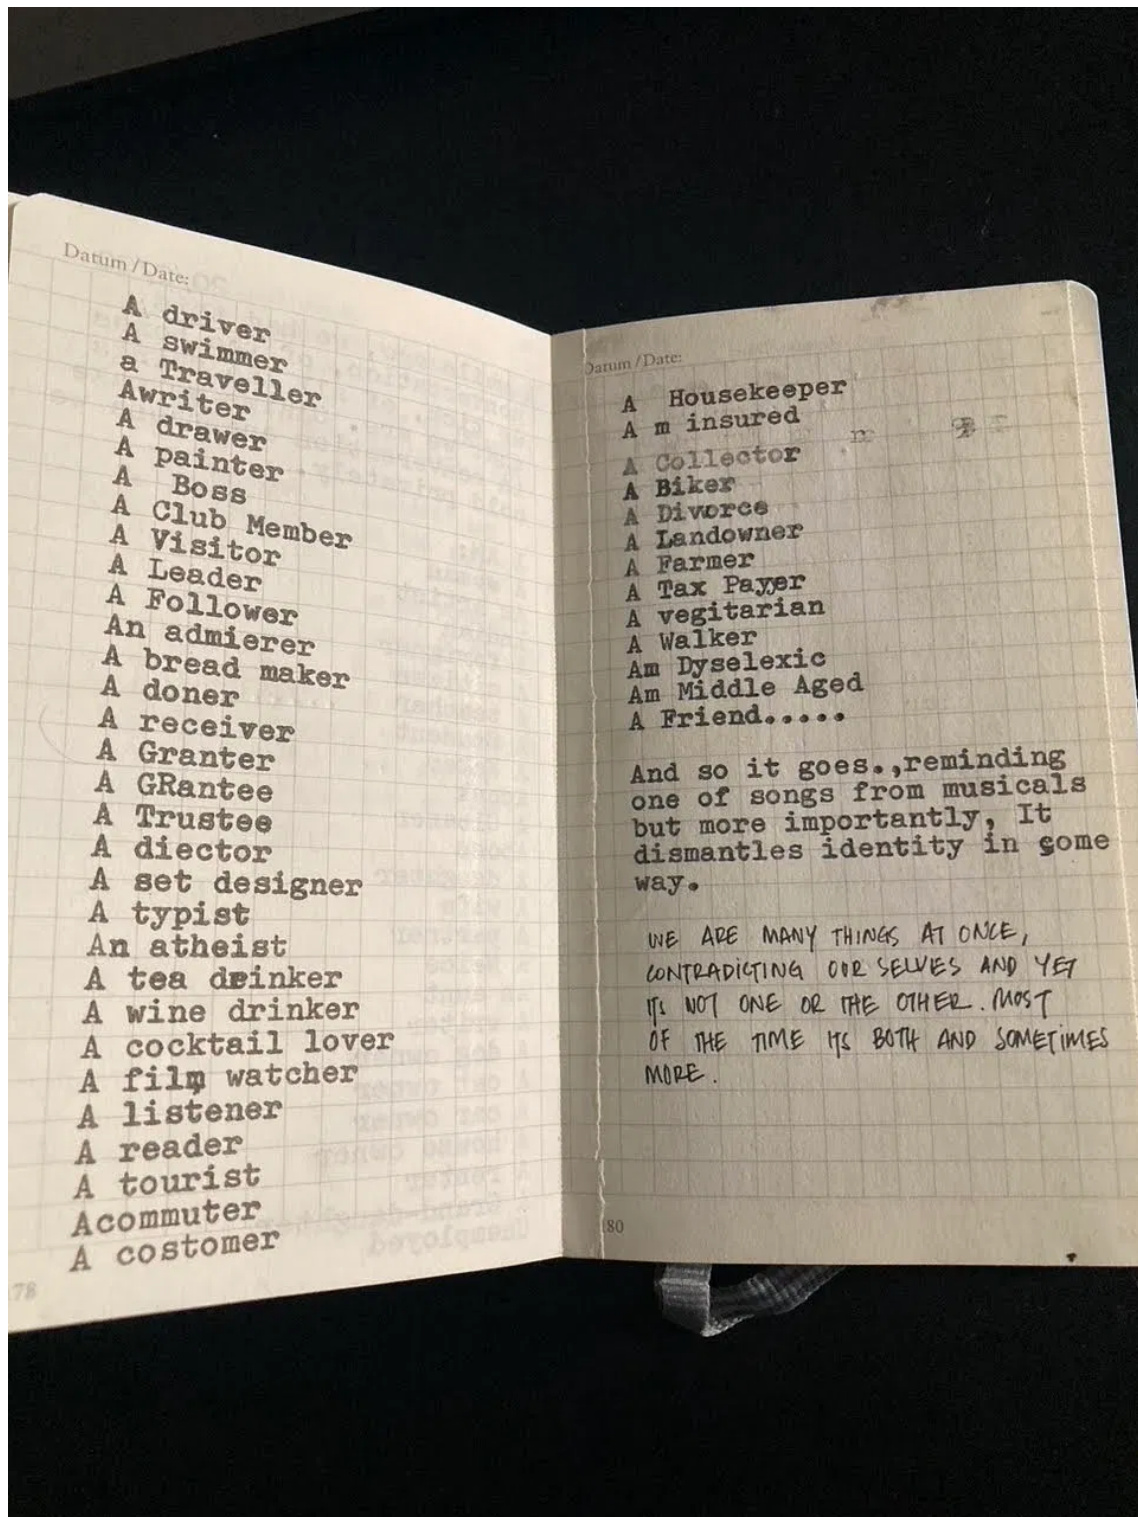 Datum / Date:
A driver
A swimmer
a Traveller
Awriter
A drawer
A painter
A Boss
A Club Member
A Visitor
A Leader
A Follower
An admierer
A bread maker
A doner
A receiver
A Granter
A GRantee
A Trustee
A diector
A set designer
A typist
An atheist
A tea drinker
A wine drinker
A cocktail lover
A film watcher
A listener
A reader
A tourist
Acommuter
A costomer
78
Datum / Date:
A Housekeeper
A m insured
A Collector
A Biker
A Divorce
A Landowner
A Farmer
A Tax Payer
A vegitarian
A Walker
Am Dyselexic
Am Middle Aged
A Friend.....
And so it goes.,reminding
one of songs from musicals
but more importantly, It
dismantles identity in some
way.
WE ARE MANY THINGS AT ONCE,
CONTRADICTING OUR SELVES AND YET
ITS NOT ONE OR THE OTHER. MOST
OF THE TIME ITS BOTH AND SOMETIMES
MORE.
80